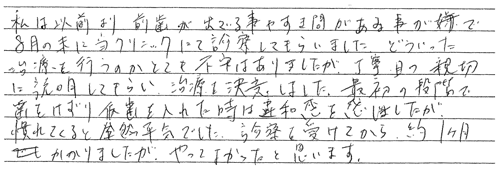 私は以前より前歯が出ている事やすき間がある事が嫌で
8月の末に当クリニックにて診察してもらいました。どういった
治療を行うのかとても不安はありましたが、丁寧且つ親切
に説明してもらい治療を決意しました。最初の段階で
歯をけずり仮歯を入れた時は違和感を感じましたが
慣れてくると全然平気でした。診察を受けてから、約1ヶ月
かかりましたが、やってよかったと思います。